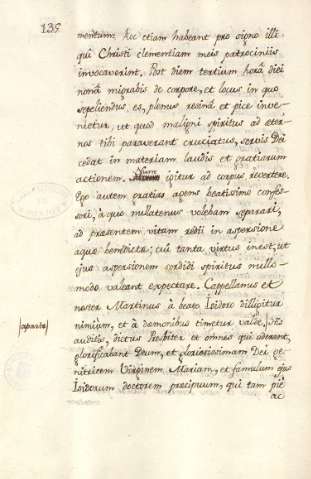 135
mentum. hec etiam habeant pro signo illi
qui Christi clementiam meis patrociniis
invocaverint. Post diem tertium horâ diei
nonâ migrabis de corpore, et locus in quo
sepeliendus es, plenus resinâ et pice inve-
nietur, ut quod maligni spiritus ad eter-
nos tibi paraverant cruciatus, servis Dei
cedat in materiam laudis et gratiarum
actionem. igitur ad corpus revertere.
Ego autem gratias agens beatissimo confes-
sori, a quo nullatenus volebam separari,
ad presentem vitam redii in aspersione
aque benedicte; cui tanta virtus inest, ut
ejus aspersionem sordidi spiritus nullo-
modo valeant expectare. Cappellanus et
noster Martinus à beato Isidoro diligitur
nimium, et à demonibus timetur valde.
auditis, dictus Presbiter et omnes qui aderant,
glorificabant Deum, et gloriosissimam Dei ge-
nitricem Virginem Mariam, et famulum ejus
Isidorum doctorem precipuum, qui tam piè
ac